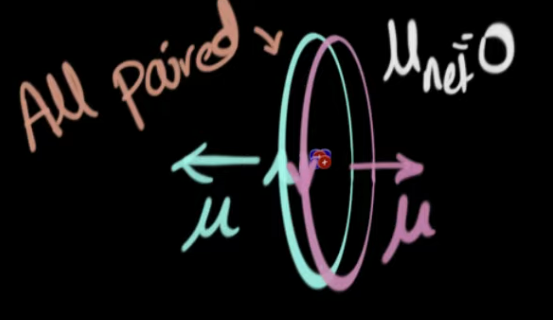 All paired
μnet=0
μ
μ
+